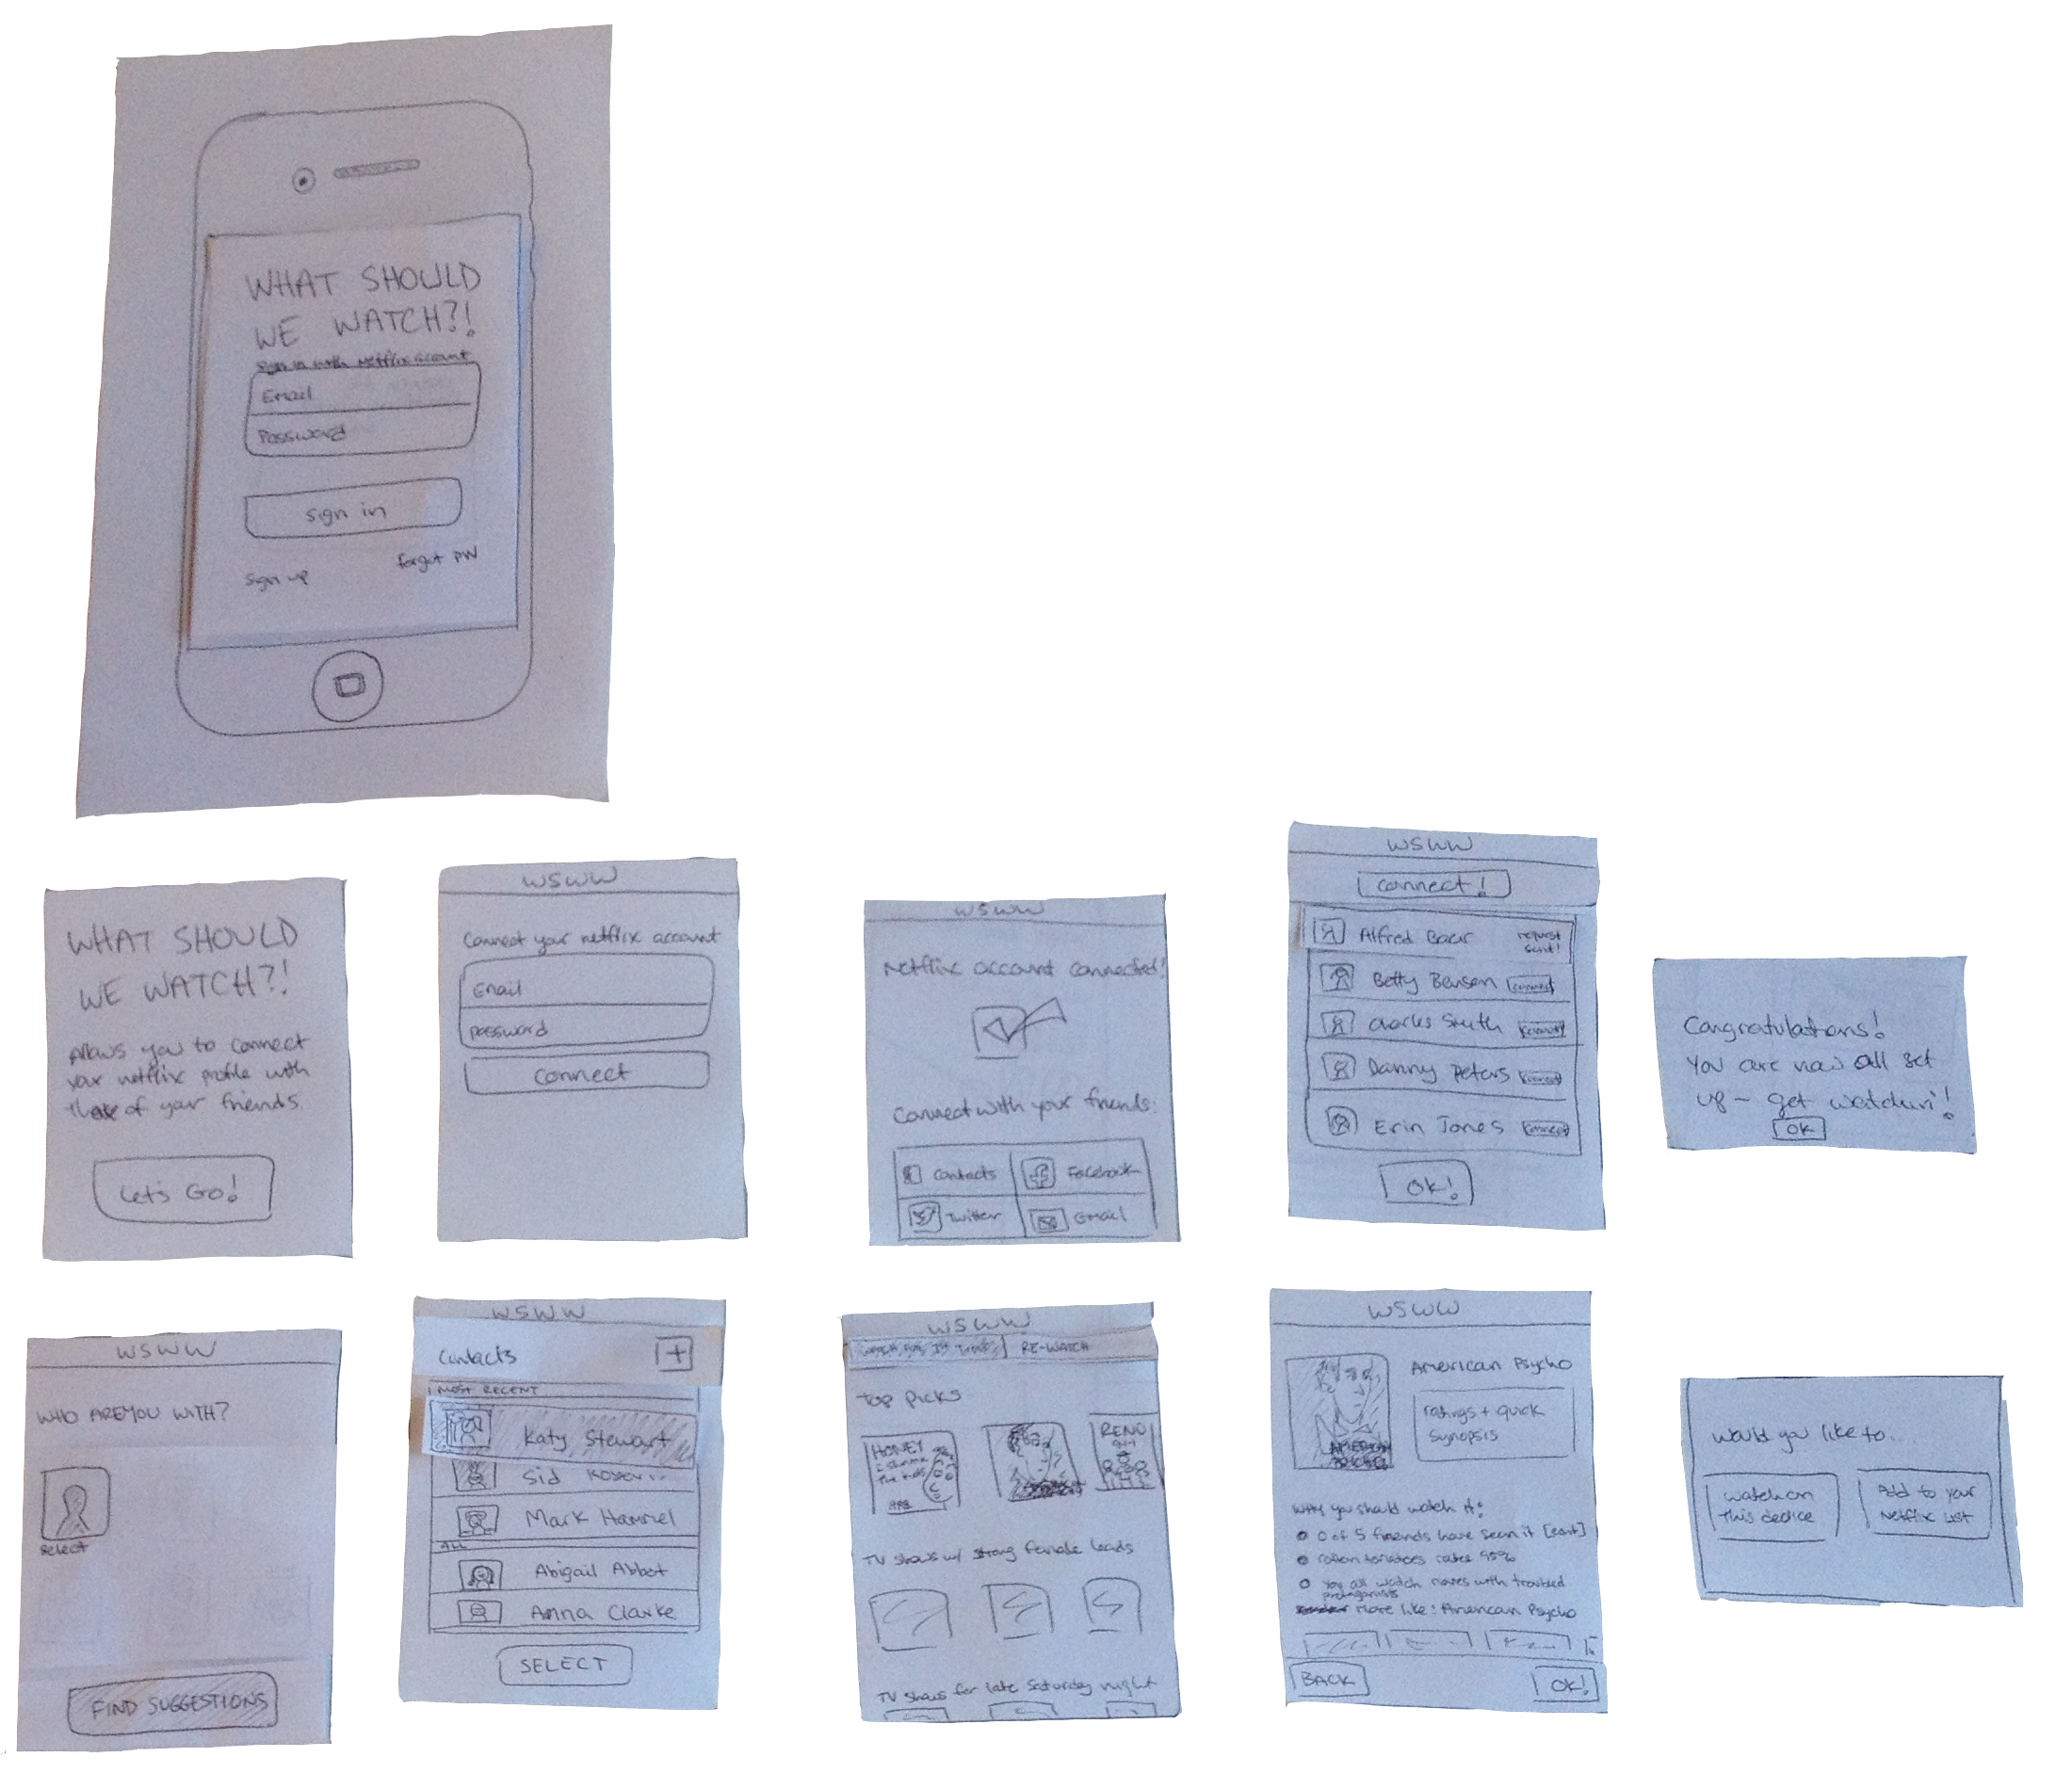 WHAT SHOULD
WE WATCH?!
Sign in with Netflix account
Email
Password
Sign in
Sign up
forgot PW
WHAT SHOULD
WE WATCH?!
Allows you to connect
your netflix profile with
those of your friends.
Let's Go!
WSWW
Connect your netflix account
Email
password
Connect
WSWW
Netflix account connected!
Connect with your friends:
Contacts
Facebook
Twitter
Email
WSWW
Connect!
Alfred Baur
request
sent!
Betty Benson connect
Charles Smith connect
Danny Peters connect
Erin Jones connect
OK!
Congratulations!
You are now all set
up - get watchin'!
OK
WSWW
WHO ARE YOU WITH?
select
FIND SUGGESTIONS
WSWW
Contacts +
MOST RECENT
Katy Stewart
Sid
Mark Hammel
ALL
Abigail Abbot
Anna Clarke
SELECT
WSWW
RE-WATCH
Top Picks
HONEY
I shrunk
The kids
RENO
911
TV shows w/ strong female leads
TV shows for late Saturday night
WSWW
American Psycho
AMERICAN
PSYCHO
ratings + quick
synopsis
Why you should watch it:
0 of 5 friends have seen it
rotten tomatoes rates 95%
You all watch movies with troubled
protagonists
More like: American Psycho
BACK
OK!
Would you like to...
Watch on
This device
Add to your
Netflix List